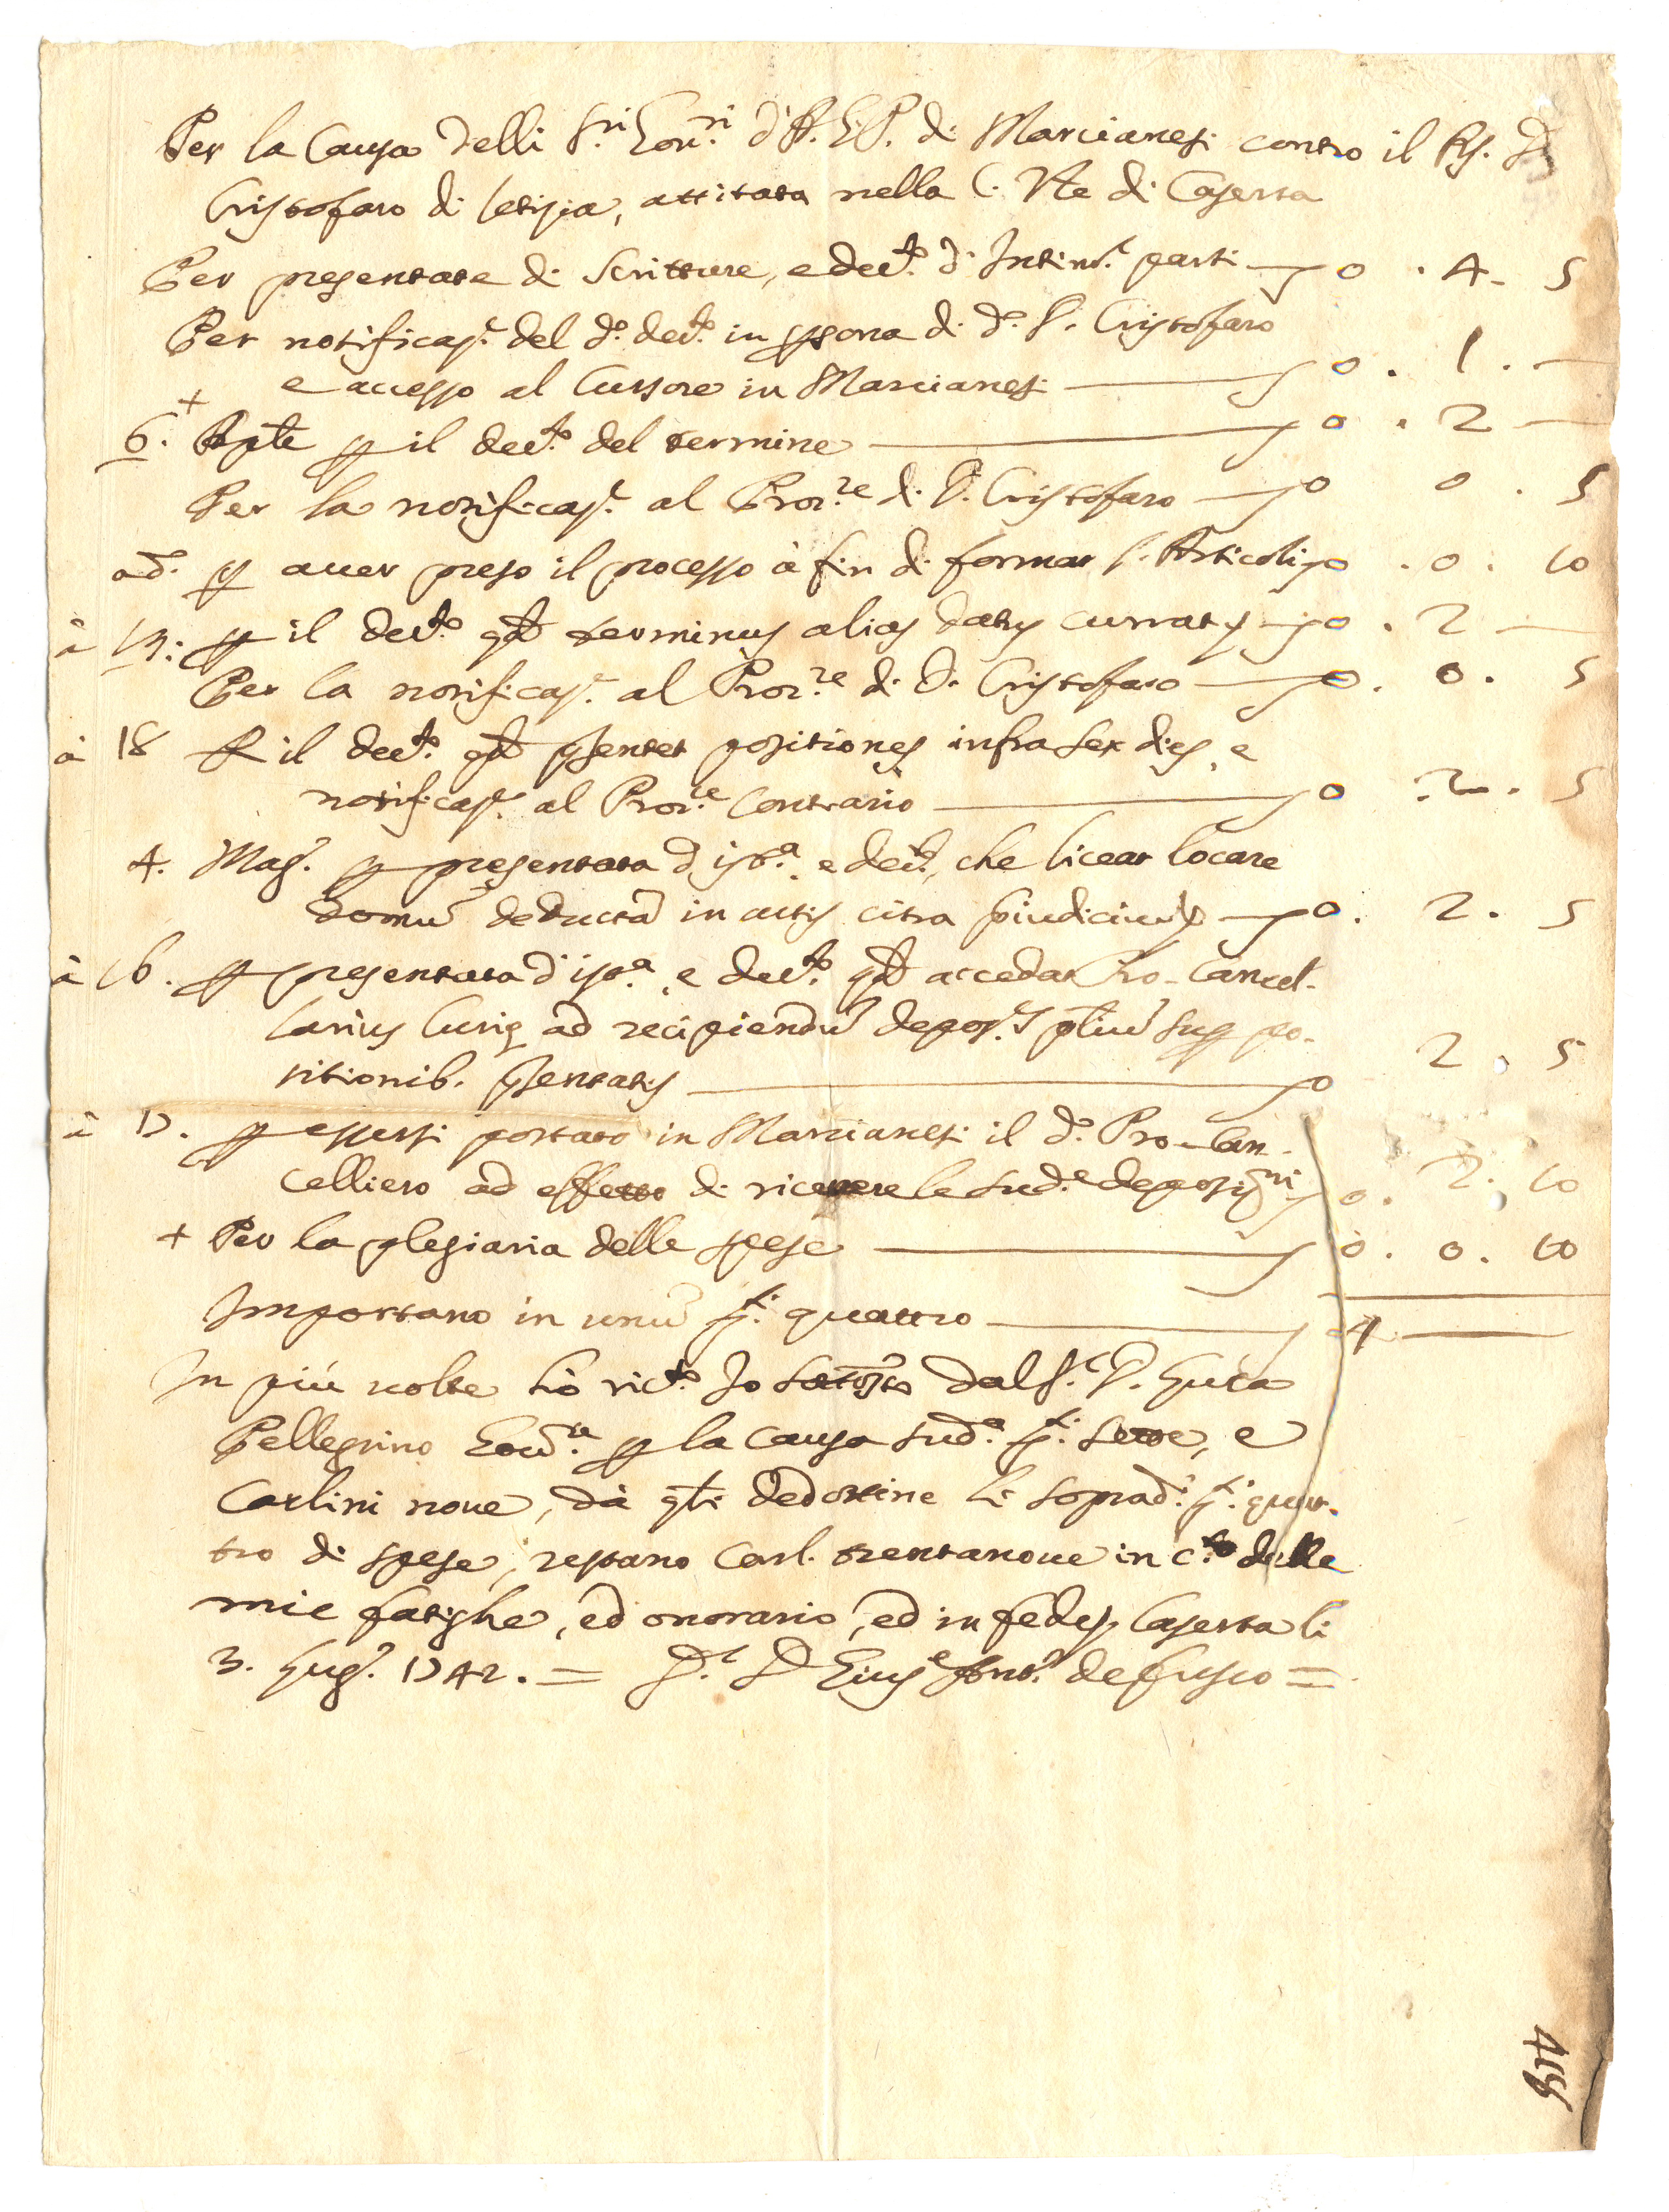 Per la Causa delli S.ri Gov.ri d'A. G. P. di Marcianesi contro il R. D.
Cristofaro di Letizia, attitata nella C. Vle di Caserta
Per presentate di Scritture, e dec.to d'Intim.r parti — 0 . 4 . 5
Per notificaz.e del d.o dec.to in psona di d.o D. Cristofaro
e accesso al Cursore in Marcianesi — 0 . 1 . —
+
6. p il dec.to del termine — 0 . 2 —
Per la notificaz.e al Pror.re di D. Cristofaro — 0 0 . 5
ad. p aver preso il processo à fin di formar l'Articoli 0 . 0 . 10
à 13: p il dec.to qd terminus alias datus currat — 0 . 2 —
Per la notificaz.e al Pror.re di D. Cristofaro — 0 . 0 . 5
à 18 p il dec.to qd psentet positiones infra sex dies, e
notificaz.e al Pror.re Contrario — 0 . 2 . 5
4. Mag.o p presentata d'ist.a, e dec.to, che liceat locare
Domū deductā in actis citra pjudiciū — 0 . 2 . 5
à 16. p presentata d'ist.a, e dec.to qd accedat Pro-Cancel-
larius Curiæ ad recipiendū depos.s ptiū sup po-
sitionib. psentatis — 0 2 . 5
à 17. p essersi portato in Marcianesi il d.o Pro-Can-
celliero ad effetto di ricevere le sud.e deposiz.ni 0 . 2 . 10
+ Per la plegiaria delle spese — 0 . 0 . 10
Importano in unū d.ti quattro — 4 —
In più volte hò ric.to Io sottotto dal S.r D. Luca
Pellegrino Gov.re p la causa sud.a d.ti sette, e
Carlini nove, da qli dedottine li soprad.i d.ti quat-
tro di spese, restano Carl. trentanove in c.to delle
mie fatighe, ed onorario, ed in fede Caserta li
3. Lug.o 1742. = D.r D Gius.e Ant.o de Fusco =